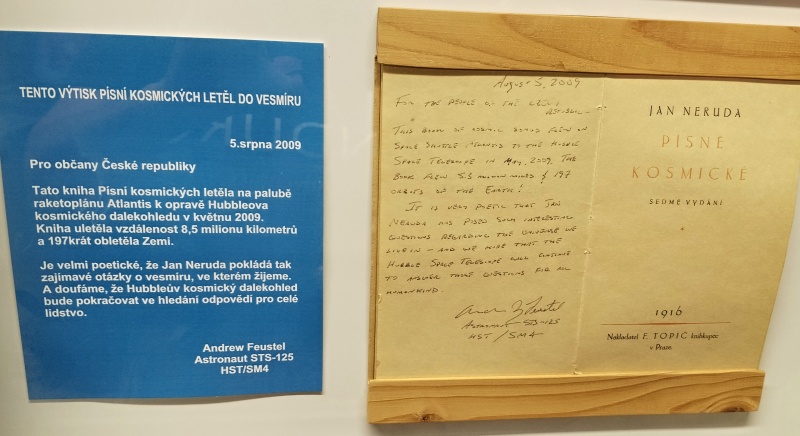 TENTO VÝTISK PÍSNÍ KOSMICKÝCH LETĚL DO VESMÍRU
5.srpna 2009
Pro občany České republiky
Tato kniha Písní kosmických letěla na palubě
raketoplánu Atlantis k opravě Hubbleova
kosmického dalekohledu v květnu 2009.
Kniha uletěla vzdálenost 8,5 milionu kilometrů
a 197krát obletěla Zemi.
Je velmi poetické, že Jan Neruda pokládá tak
zajímavé otázky o vesmíru, ve kterém žijeme.
A doufáme, že Hubbleův kosmický dalekohled
bude pokračovat ve hledání odpovědí pro celé
lidstvo.
Andrew Feustel
Astronaut STS-125
HST/SM4
August 5, 2009
FOR THE PEOPLE OF THE CZECH
THIS BOOK OF COSMIC SONGS FLEW ON
SPACE SHUTTLE ATLANTIS TO THE HUBBLE
SPACE TELESCOPE IN MAY, 2009. THE
BOOK FLEW 5.3 MILLION MILES & 197
ORBITS OF THE EARTH!
IT IS VERY POETIC THAT JAN
NERUDA HAS POSED SUCH INTERESTING
QUESTIONS REGARDING THE UNIVERSE WE
LIVE IN – AND WE HOPE THAT THE
HUBBLE SPACE TELESCOPE WILL CONTINUE
TO ANSWER THOSE QUESTIONS FOR ALL
HUMANKIND.
ASTRONAUT STS-125
HST/SM4
JAN NERUDA
PÍSNĚ
KOSMICKÉ
SEDMÉ VYDÁNÍ
1916
Nakladatel F. TOPIČ knihkupec
v Praze.